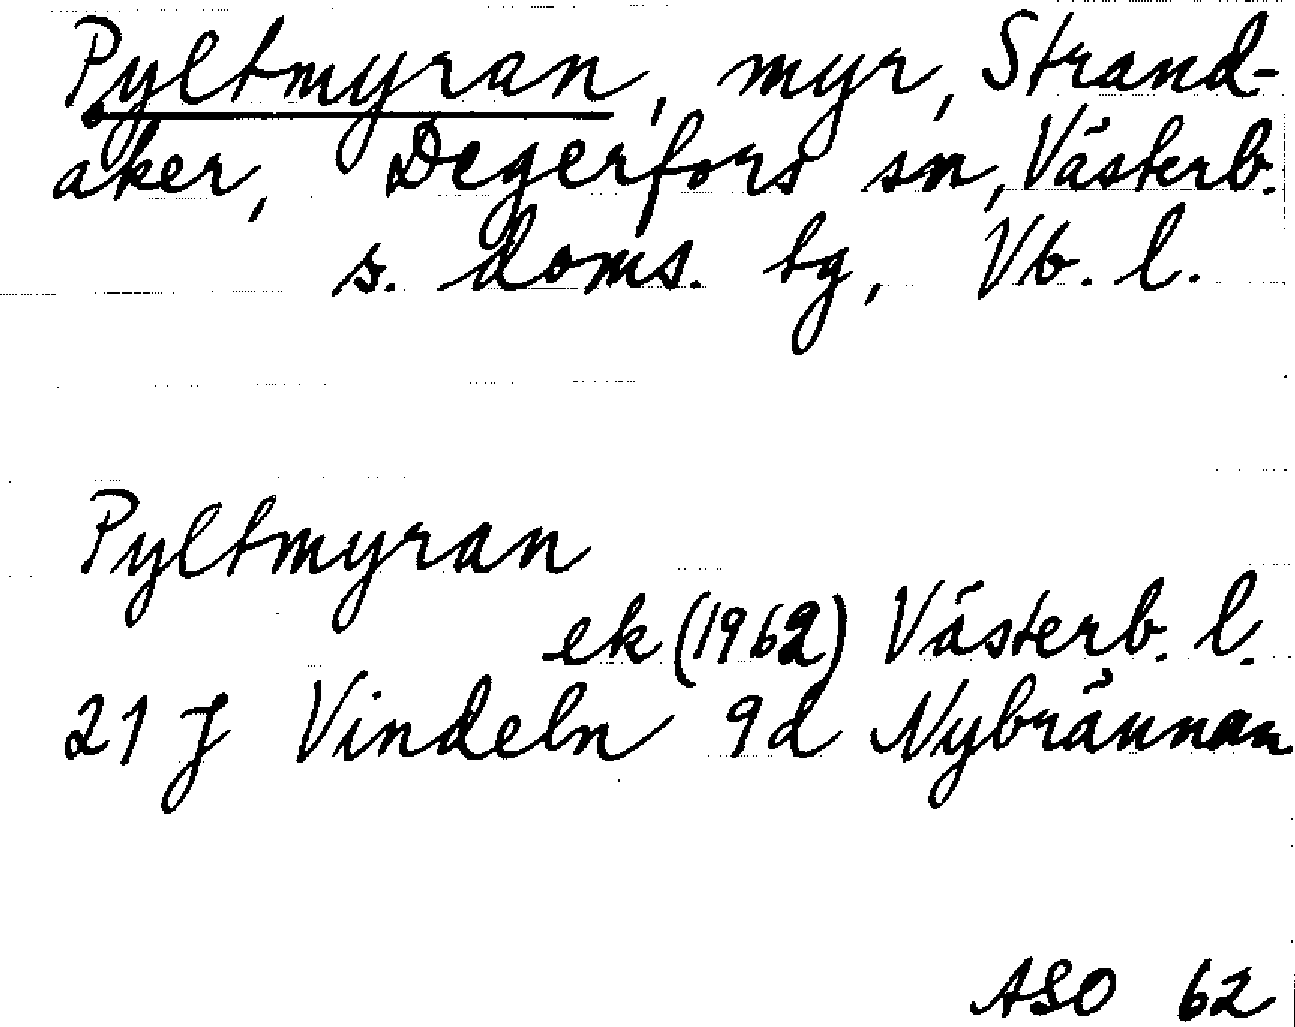 Pyltmyran, myr, Strand-
åker, Degerfors sn, Västerb.
s. doms. tg, Vb. l.
Pyltmyran
ek (1962) Västerb. l.
21 J Vindeln 9d Nybrännan
ASO 62